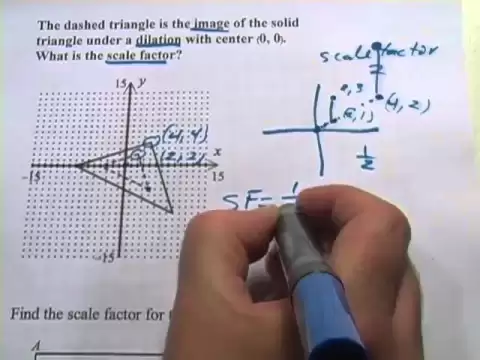 The dashed triangle is the image of the solid
triangle under a dilation with center (0, 0).
What is the scale factor?
scale factor
2
15
y
2, 3
(2, 1)
(4, 2)
(4, 4)
(2, 2)
x
-15
15
1/2
SF = 1
-15
Find the scale factor for
A